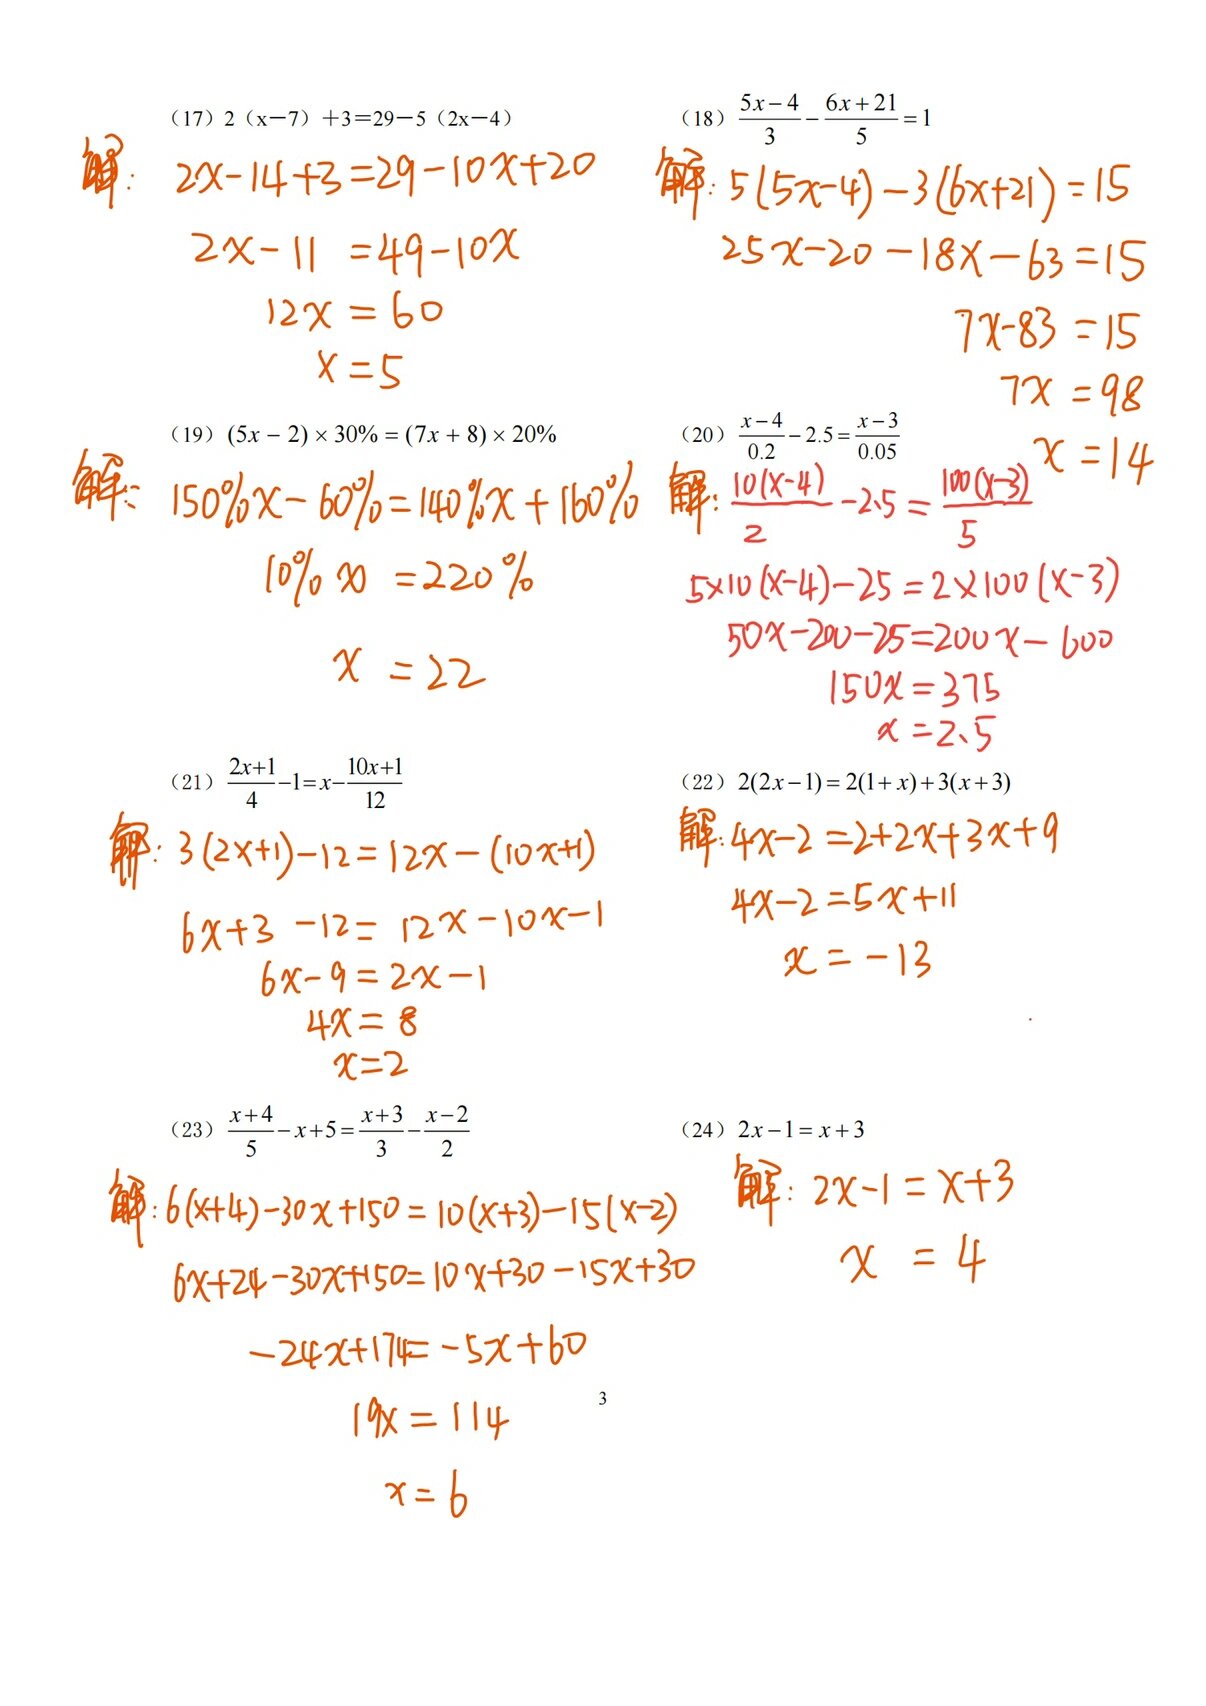 （17）2（x－7）＋3＝29－5（2x－4）
解： 2x-14+3=29-10x+20
2x-11 =49-10x
12x = 60
x =5
（18）(5x-4)/3 - (6x+21)/5 = 1
解：5(5x-4)-3(6x+21)=15
25x-20-18x-63=15
7x-83 =15
7x =98
x =14
（19）(5x-2)×30%=(7x+8)×20%
解：150%x-60%=140%x+160%
10% x =220%
x =22
（20）(x-4)/0.2 - 2.5 = (x-3)/0.05
解：10(x-4)/2 -2.5= 100(x-3)/5
5×10(x-4)-25=2×100(x-3)
50x-200-25=200x-600
150x=375
x=2.5
（21）(2x+1)/4 -1=x- (10x+1)/12
解：3(2x+1)-12=12x-(10x+1)
6x+3 -12= 12x-10x-1
6x-9=2x-1
4x= 8
x=2
（22）2(2x-1)=2(1+x)+3(x+3)
解：4x-2=2+2x+3x+9
4x-2=5x+11
x=-13
（23）(x+4)/5 -x+5= (x+3)/3 - (x-2)/2
解：6(x+4)-30x+150=10(x+3)-15(x-2)
6x+24-30x+150=10x+30-15x+30
-24x+174=-5x+60
19x=114
x=6
（24）2x-1=x+3
解：2x-1=x+3
x =4
3